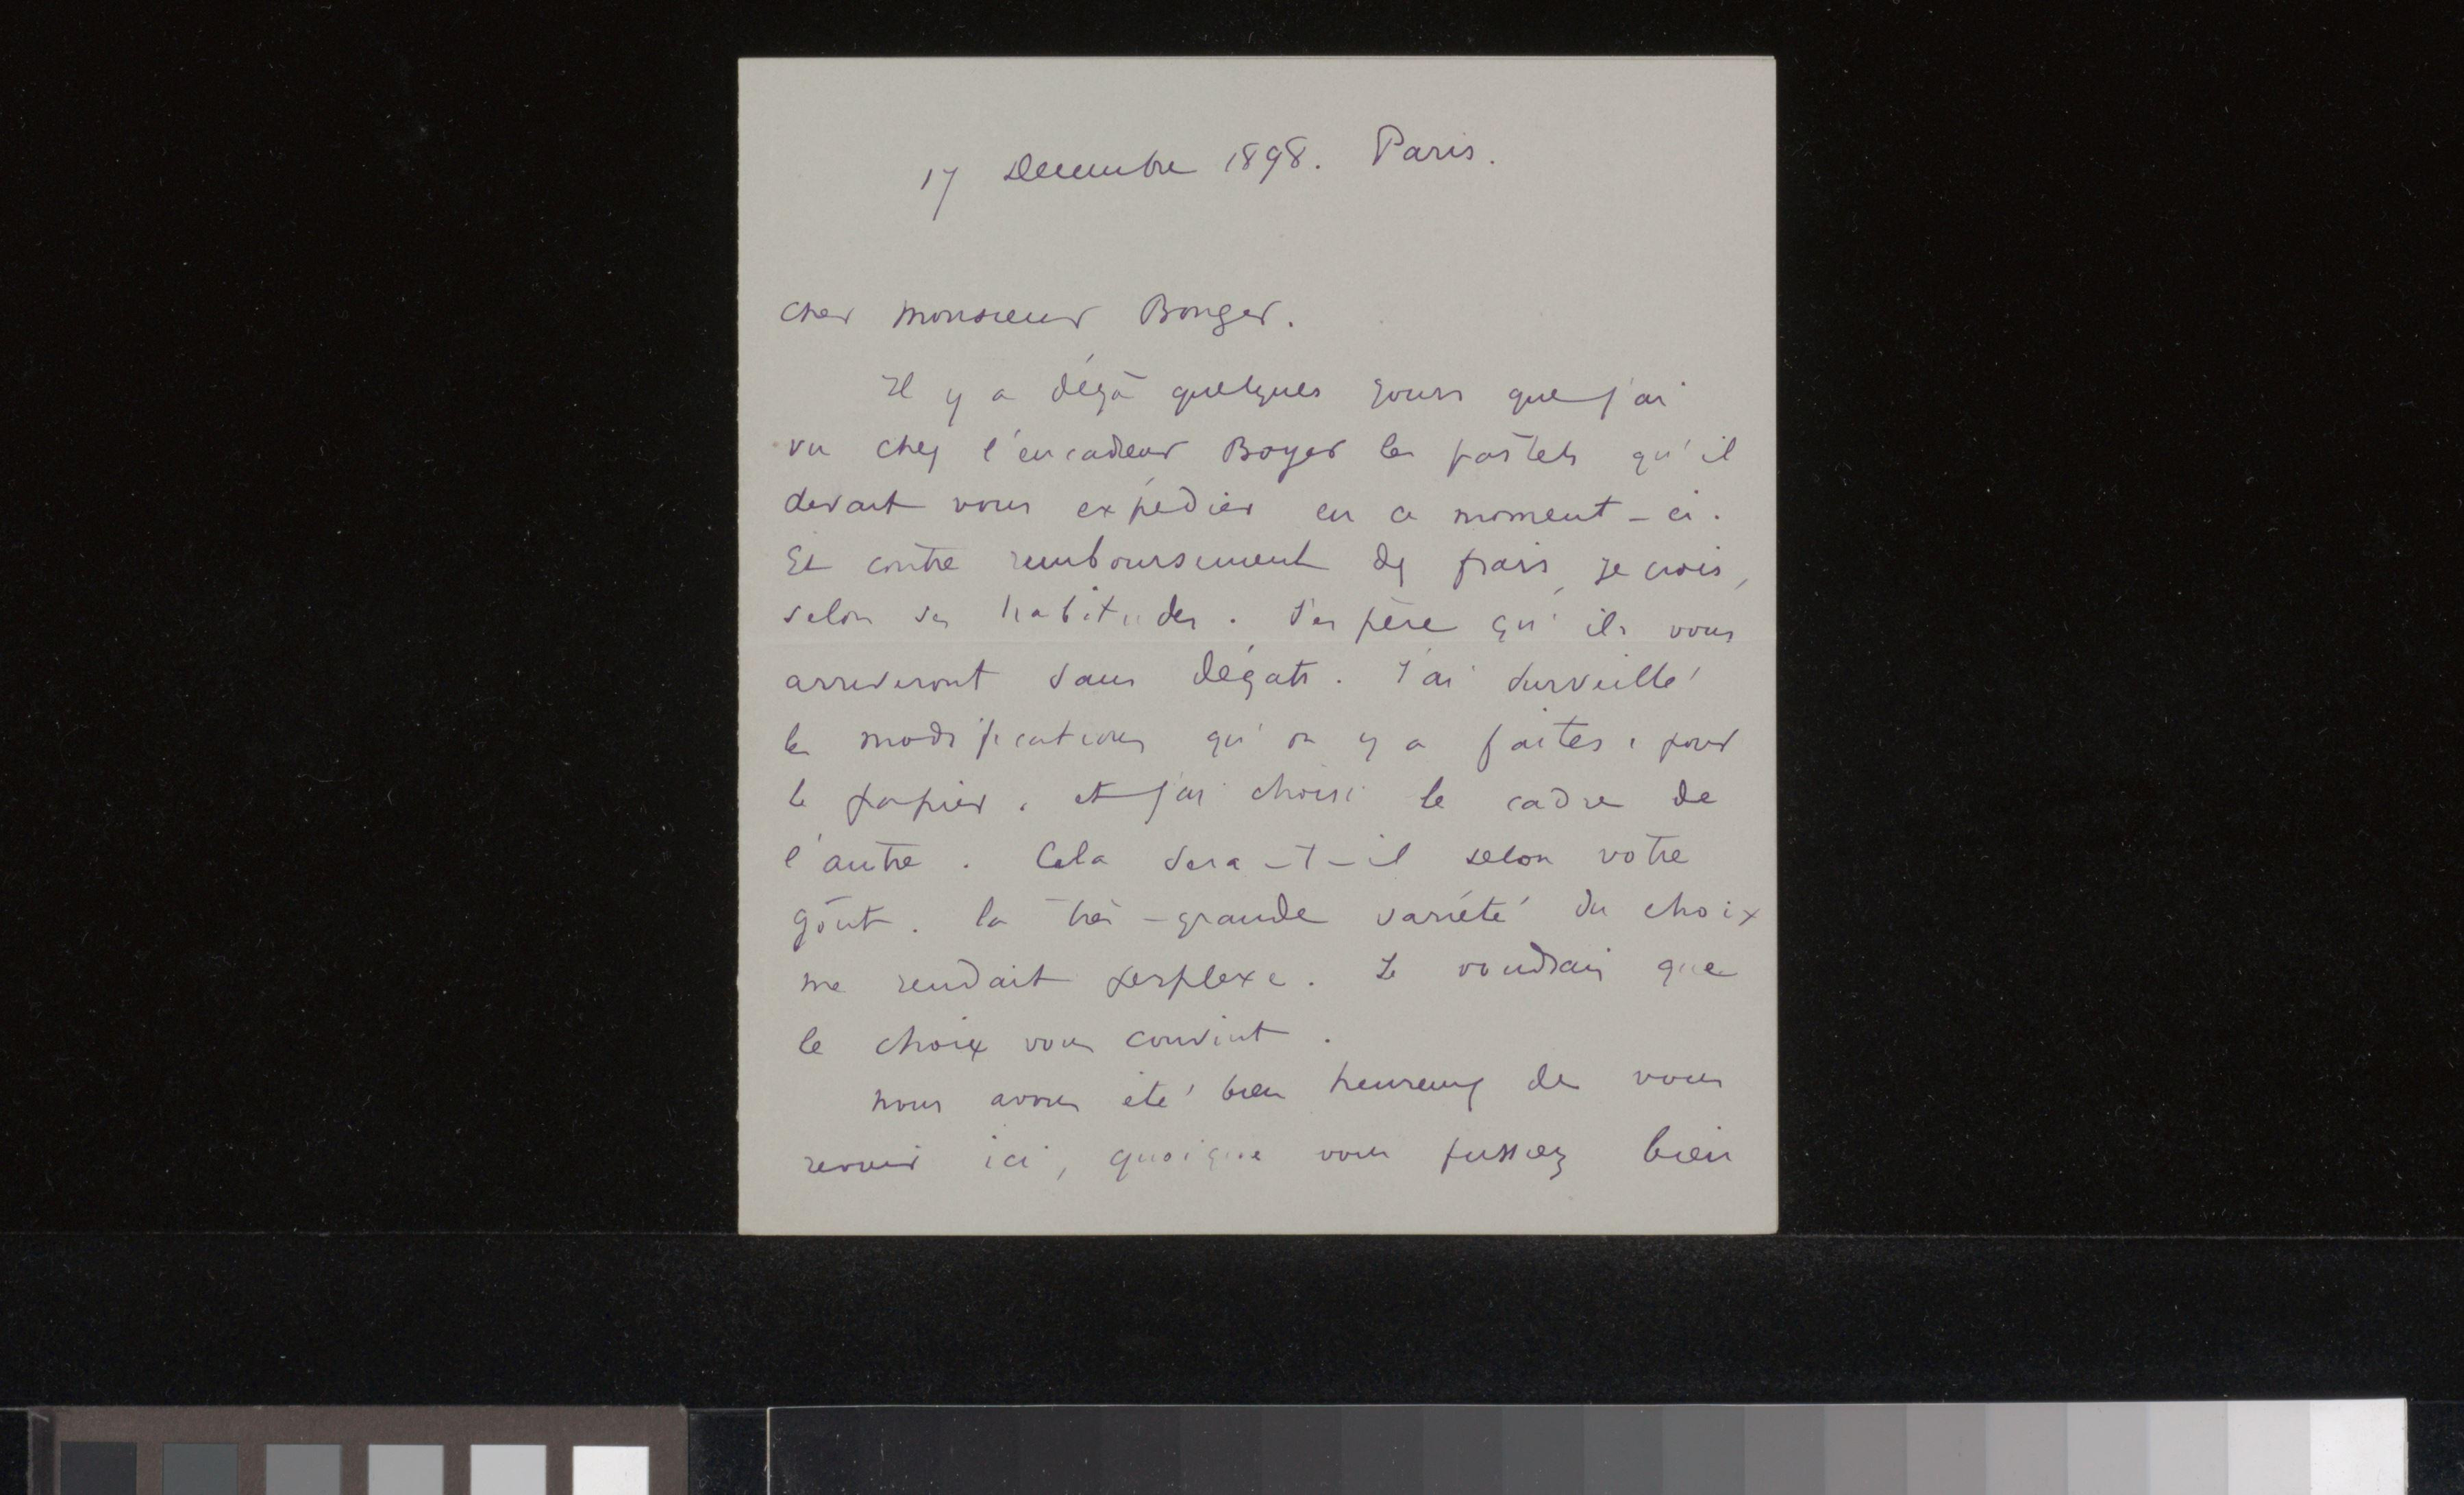 17 Decembre 1898. Paris.
cher monsieur Bonger.
Il y a déjà quelques jours que j'ai
vu chez l'encadreur Boyer les pastels qu'il
devait vous expédier en ce moment-ci.
Et contre remboursement des frais, je crois,
selon ses habitudes. J'espère qu'ils vous
arriveront sans dégats. J'ai surveillé
les modifications qu'on y a faites, pour
le papier, et j'ai choisi le cadre de
l'autre. Cela sera-t-il selon votre
goût. la très-grande variété du choix
me rendait perplexe. Je voudrais que
le choix vous convint.
nous avons été bien heureux de vous
revoir ici, quoique vous fussiez bien